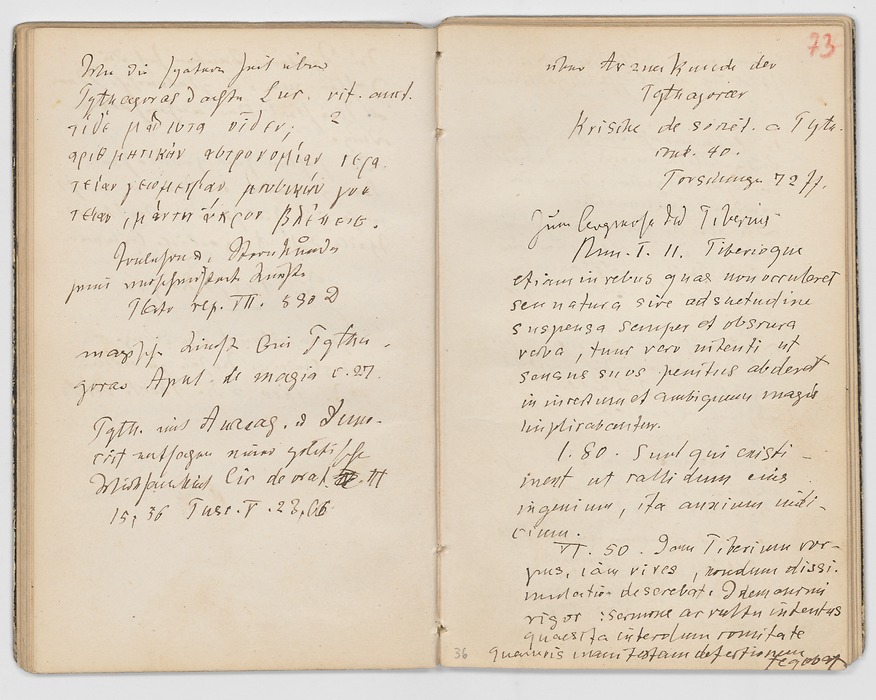 Wie die spätere Zeit über
Pythagoras dachte Luc. vit. auct.
τί δὲ μάλιστα οἶδεν; 2
ἀριθμητικὴν ἀστρονομίαν τερα-
τείαν γεωμετρίαν μουσικὴν γοη-
τείαν μάντιν ἄκρον βλέπεις.
Plato rep. VII. 530 D
magische Künste bei Pytha-
goras Apul. de magia c. 27.
Pyth. mit Anaxag. u Demo-
crit entsagen einer politische
Cic de orat. III
15, 56 Tusc. V. 23, 66
73
über Arzneikunde der
Pythagoräer
Krische de societ. a Pyth.
cond. 40.
Forschungen 72 ff.
Zum des Tiberius
Ann. I. 11. Tiberioque
etiam in rebus quas non occuleret
seu natura sive adsuetudine
suspensa semper et obscura
verba, tunc vero nitenti ut
sensus suos penitus abderet
in incertum et ambiguum magis
implicabantur.
1. 80. Sunt qui existi-
ment ut callidum eius
ingenium, ita anxium iudi-
cium.
VI. 50. Iam Tiberium cor-
pus, iam vires, nondum dissi-
mulatio deserebat. Idem animi
rigor: sermone ac vultu intentus
quaesita interdum comitate
36 quamvis manifestam defectionem
tegebat